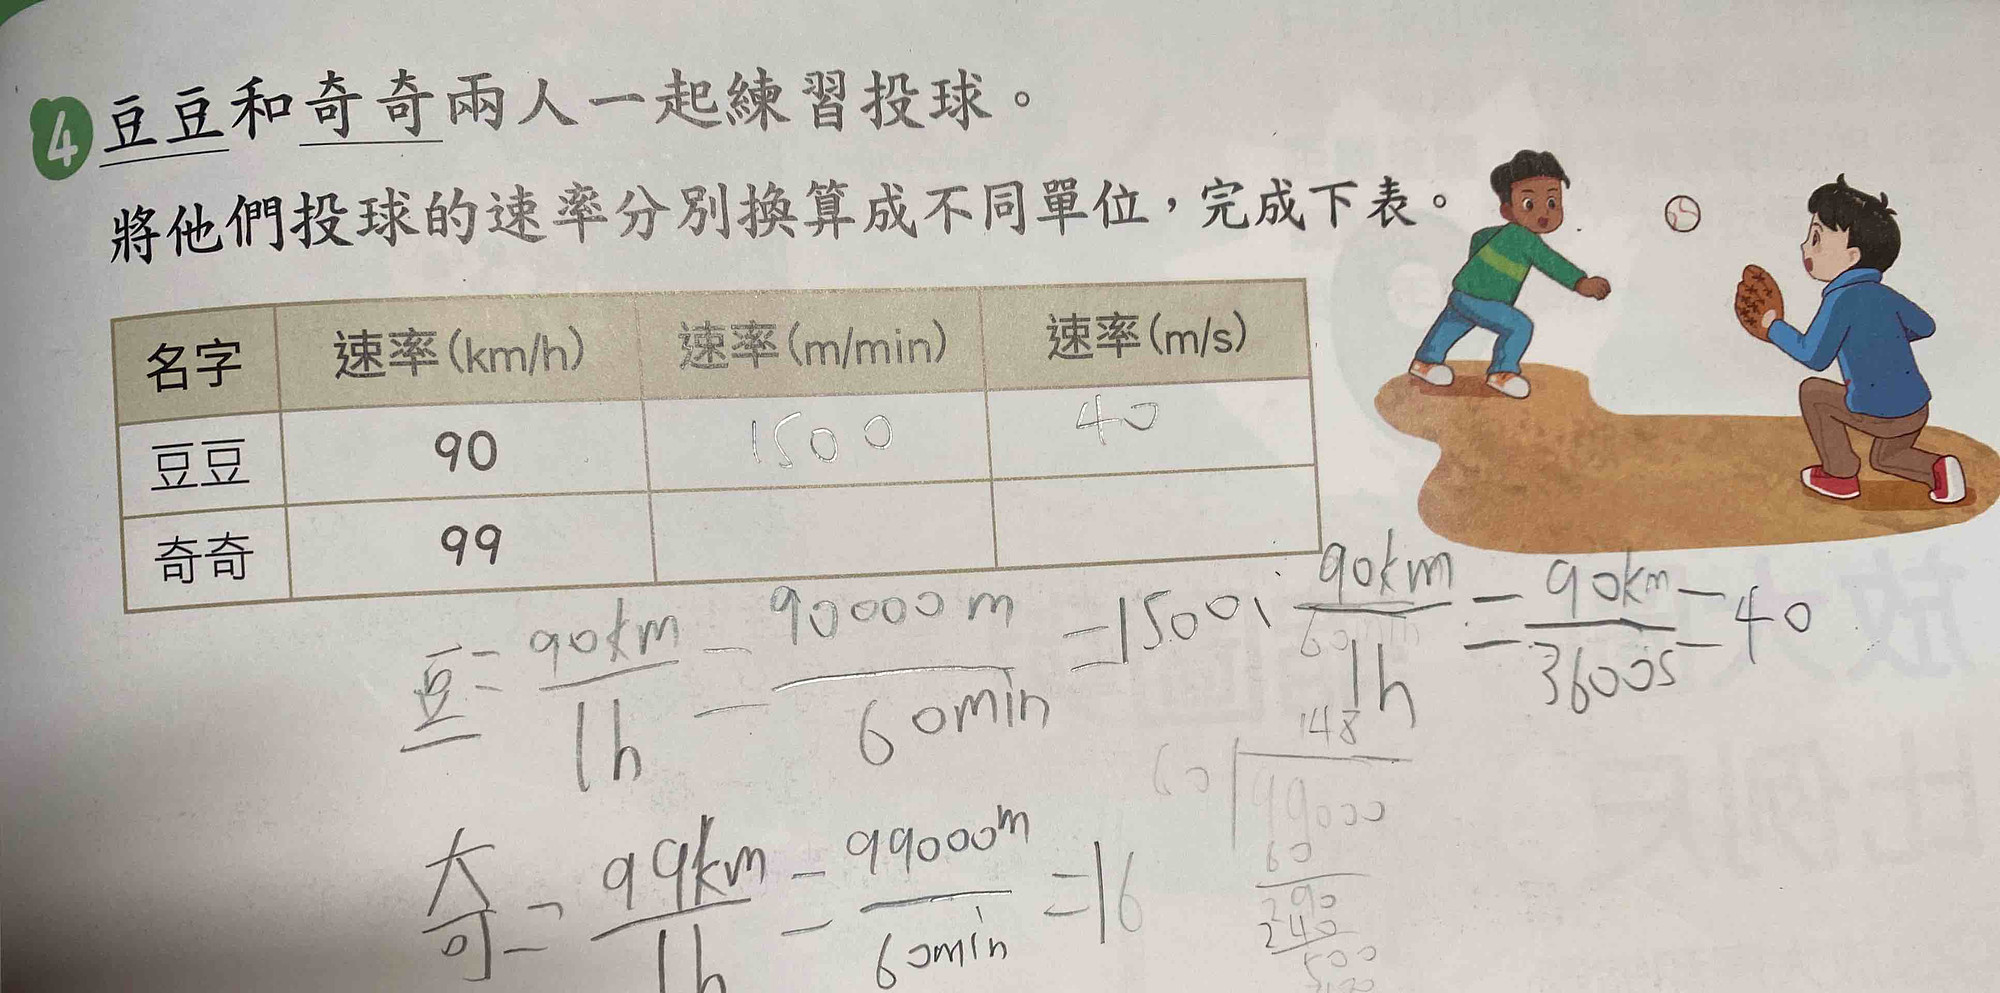 4 豆豆和奇奇兩人一起練習投球。
將他們投球的速率分別換算成不同單位，完成下表。
名字 速率(km/h) 速率(m/min) 速率(m/s)
豆豆 90 1500 40
奇奇 99
豆= 90km/1h = 90000m/60min = 1500
90km/1h = 90km/3600s = 40
奇= 99km/1h = 99000m/60min = 16
148
60 99000
60
290
240
500